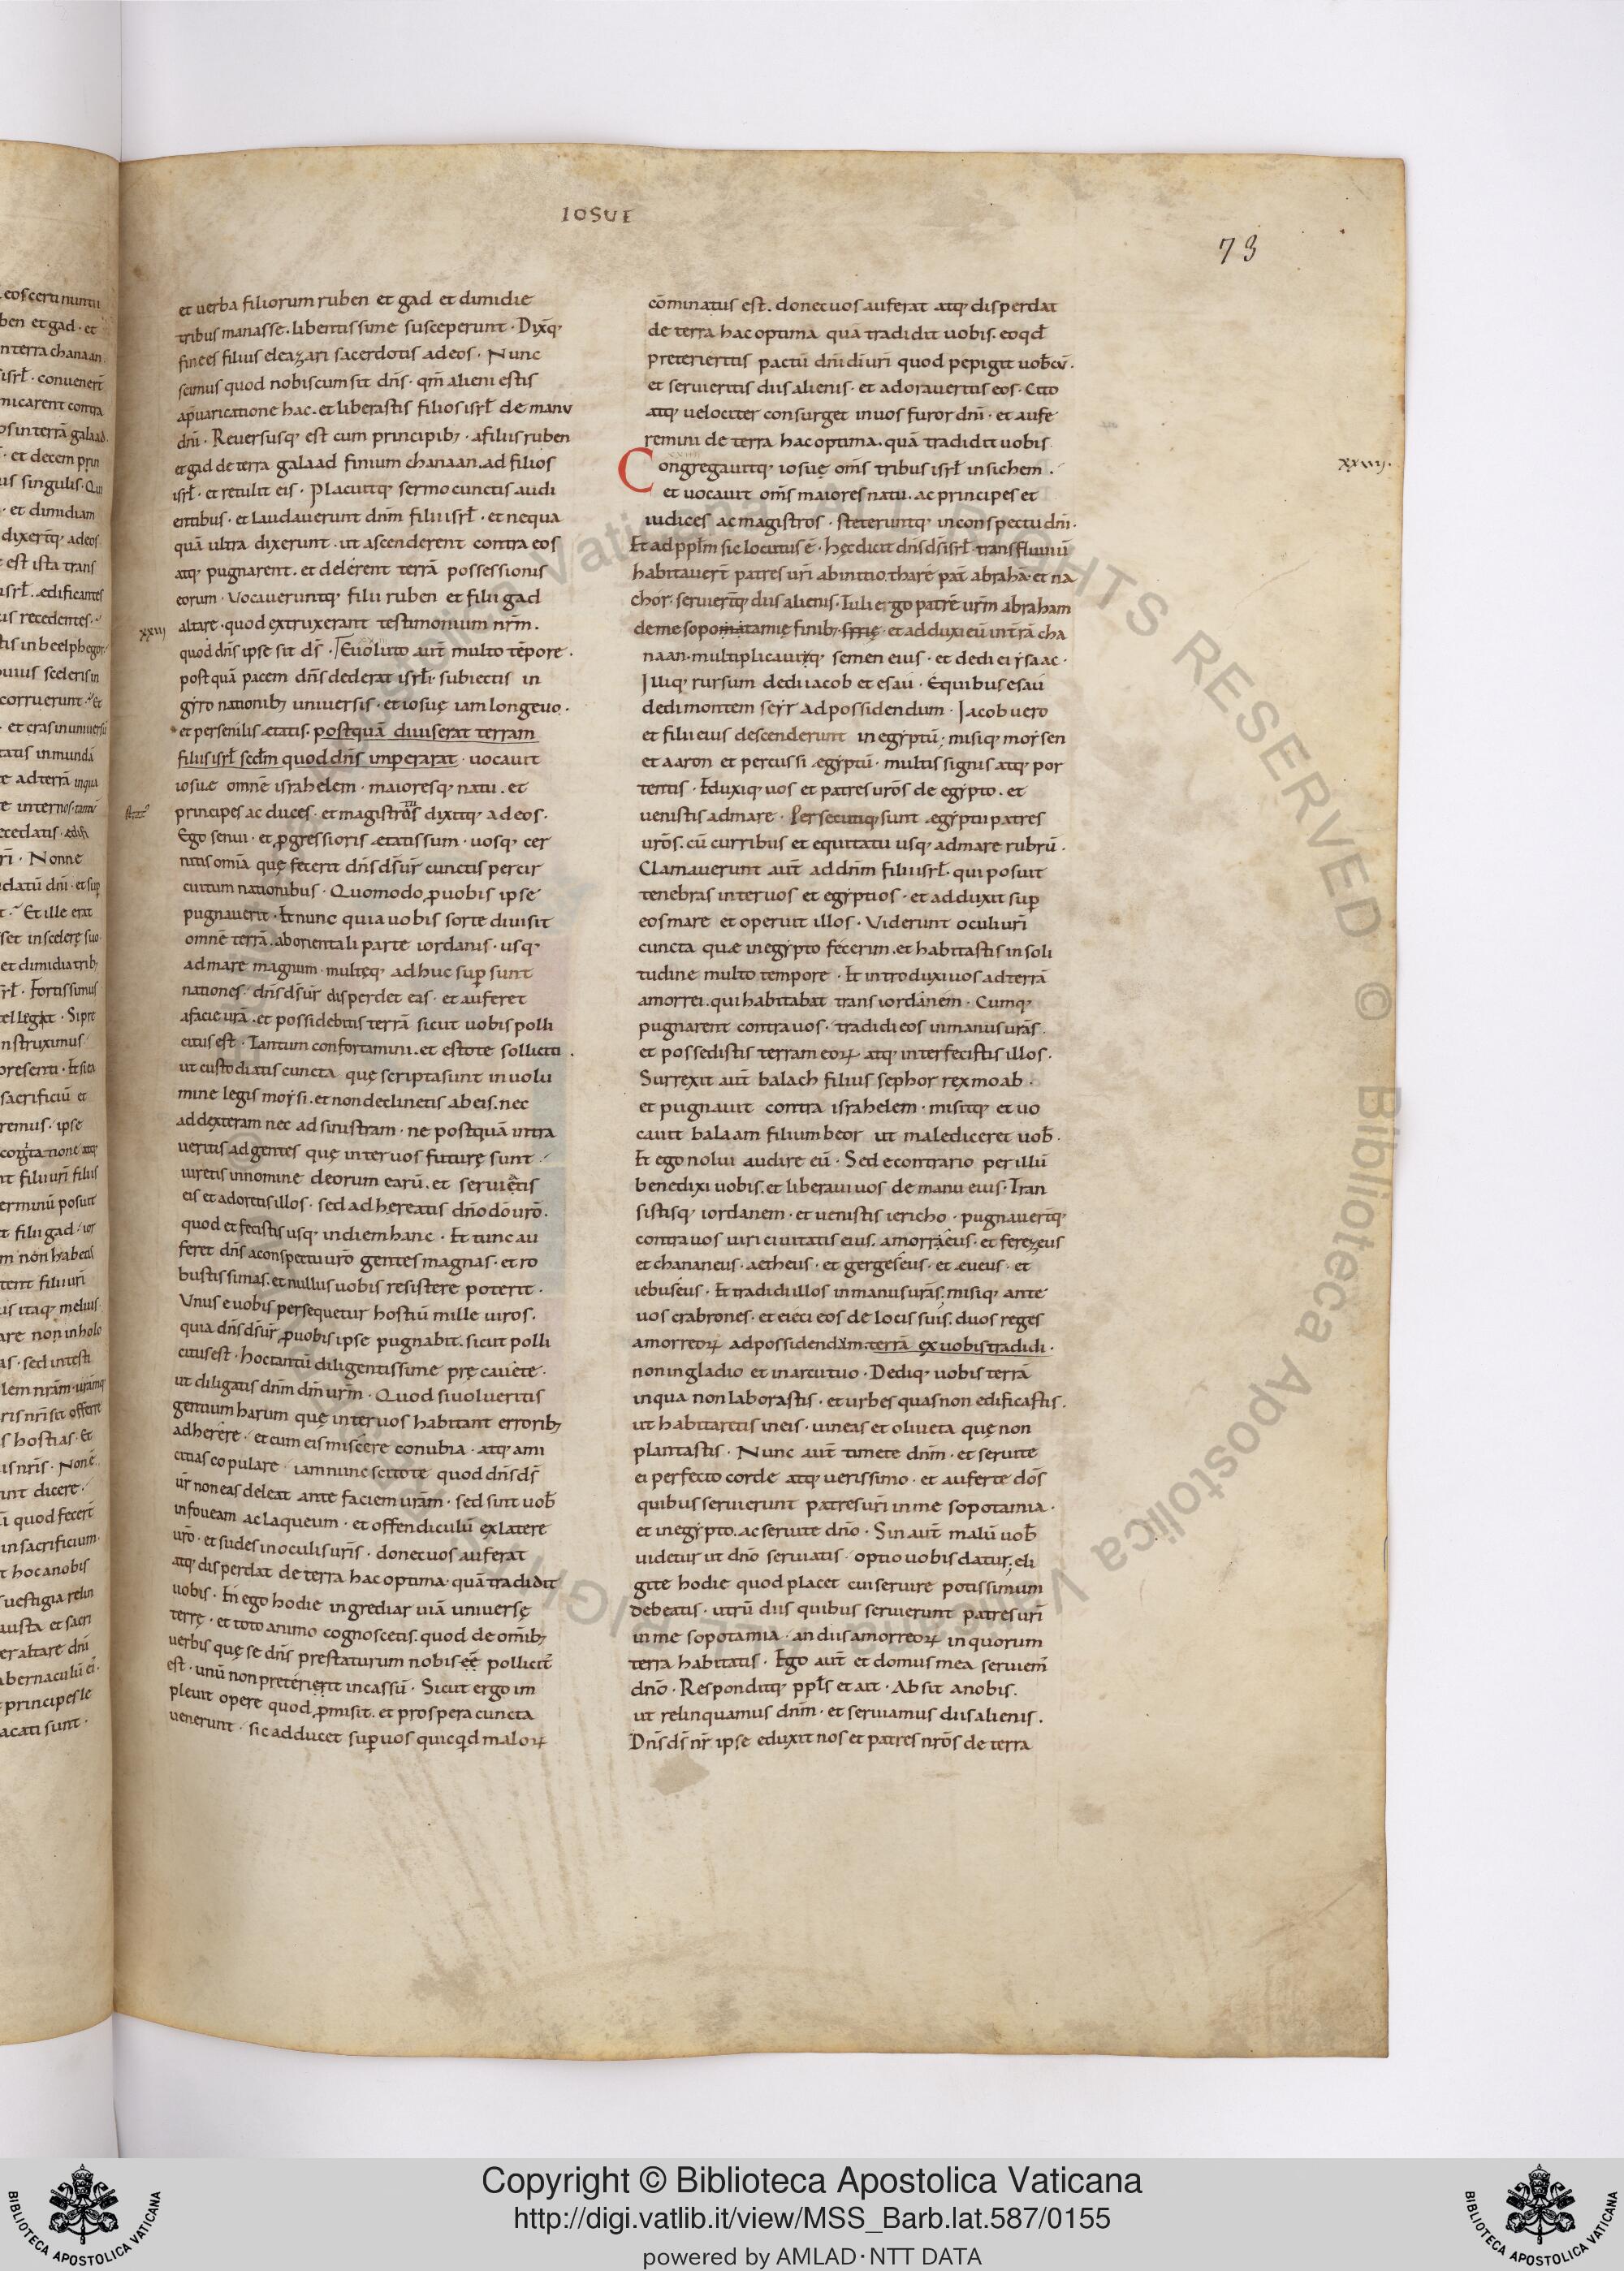 IOSUE
73
et uerba filiorum ruben et gad et dimidie
tribus manasse. libentissime susceperunt. Dixitq;
finees filius eleazari sacerdotis ad eos. Nunc
scimus quod nobiscum sit dns̄. qm̄ alieni estis
a p̄uaricatione hac. et liberastis filios isrł de manu
dnī. Reuersusq; est cum principib; a filiis ruben
et gad de terra galaad finium chanaan. ad filios
isrł. et retulit eis. Placuitq; sermo cunctis audi
entibus. et laudauerunt dnm̄ filii isrł. et nequa
quā ultra dixerunt. ut ascenderent contra eos
atq; pugnarent. et delerent terrā possessionis
eorum. Vocaueruntq; filii ruben et filii gad
altare. quod extruxerant testimonium nrm̄.
xxiii
quod dns̄ ipse sit ds̄. Euoluto aut̄ multo tēpore.
post quā pacem dns̄ dederat isrłi. subiectis in
gyro nationib; uniuersis. et iosuę iam longeuo.
et persenilis ętatis. postquā diuiserat terram
filiis isrł scdm̄ quod dns̄ imperarat. uocauit
iosuæ omnē israhelem. maioresq; natu. et
principes ac duces. et magistros dixitq; ad eos.
Ego senui. et progressioris ętatis sum. uosq; cer
nitis omīa quę fecerit dns̄ ds̄ ur̄ cunctis percir
cuitum nationibus. Quomodo pro uobis ipse
pugnauerit. Et nunc quia uobis sorte diuisit
omnē terrā. ab orientali parte iordanis. usq;
ad mare magnum. multęq; adhuc sup̄ sunt
nationes. dns̄ ds̄ ur̄ disperdet eas. et auferet
a facie urā. et possidebitis terrā sicut uobis polli
citus est. Tantum confortamini. et estote solliciti.
ut custodiatis cuncta quę scripta sunt in uolu
mine legis moysi. et non declinetis ab eis. nec
ad dexteram nec ad sinistram. ne postquā intra
ueritis ad gentes quę inter uos futurę sunt.
iuretis in nomine deorum earū. et seruietis
eis et adoretis illos. sed adhereatis dnō dō urō.
quod et fecistis usq; in diem hanc. Et tunc au
feret dns̄ a conspectu urō gentes magnas. et ro
bustissimas. et nullus uobis resistere poterit.
Unus e uobis persequetur hostiū mille uiros.
quia dns̄ ds̄ ur̄ pro uobis ipse pugnabit. sicut polli
citus est. hoc tantū diligentissime pręcauete.
ut diligatis dnm̄ dm̄ urm̄. Quod si uolueritis
gentium harum quę inter uos habitant errorib;
adherere. et cum eis miscere conubia. atq; ami
citias copulare iam nunc scitote quod dns̄ ds̄
ur̄ non eas deleat ante faciem urām. sed sint uob̄
in foueam ac laqueum. et offendiculū ex latere
urō. et sudes in oculis urīs. donec uos auferat
atq; disperdat de terra hac optima. quā tradidit
uobis. En ego hodie ingrediar uiā uniuersę
terrę. et toto animo cognoscetis. quod de omīb;
uerbis quę se dns̄ prestaturum nobis eē pollicit̄
est. unū non preterierit incassū. Sicut ergo im
pleuit opere quod promisit. et prospera cuncta
uenerunt. sic adducet sup̄ uos quicqd̄ maloꝝ
cōminatus est. donec uos auferat atq; disperdat
de terra hac optima quā tradidit uobis. eo qđ
preterieritis pactū dnī dī urī quod pepigit uob̄cū.
et seruieritis diis alienis. et adoraueritis eos. Cito
atq; uelociter consurget in uos furor dnī. et aufe
remini de terra hac optima. quā tradidit uobis
xxiiii.
Congregauitq; iosuę oms̄ tribus isrł in sichem.
et uocauit oms̄ maiores natu. ac principes et
iudices ac magistros. steteruntq; in conspectu dnī.
Et ad ppłm sic locutus ē. hęc dicit dns̄ ds̄ isrł. trans fluuiū
habitauer̄t patres urī ab initio. tharē pat̄ abrahā. et na
chor. seruierūtq; diis alienis. Tuli ergo patrē urm̄ abraham
de mesopotamię finib;. et adduxi eū in trā̄ cha
naan. multiplicauiq; semen eius. et dedi ei ysaac.
Illiq; rursum dedi iacob et esau. E quibus esau
dedi montem seyr ad possidendum. Iacob uero
et filii eius descenderunt in egyptū. misiq; moysen
et aaron et percussi ęgyptū. multis signis atq; por
tentis. Eduxiq; uos et patres urōs de egypto. et
uenistis ad mare. Persecutiq; sunt ęgyptii patres
urōs. cū curribus et equitatu usq; ad mare rubrū.
Clamauerunt aut̄ ad dnm̄ filii isrł. qui posuit
tenebras inter uos et egyptios. et adduxit sup̄
eos mare et operuit illos. Viderunt oculi urī
cuncta quæ in egypto fecerim. et habitastis in soli
tudine multo tempore. Et introduxi uos ad terrā
amorrei. qui habitabat trans iordanem. Cumq;
pugnarent contra uos. tradidi eos in manus urās.
et possedistis terram eoꝝ. atq; interfecistis illos.
Surrexit aut̄ balach filius sephor rex moab.
et pugnauit contra israhelem. misitq; et uo
cauit balaam filium beor ut malediceret uob̄.
Et ego nolui audire eū. Sed e contrario per illū
benedixi uobis. et liberaui uos de manu eius. Tran
sistisq; iordanem. et uenistis iericho. pugnauerūtq;
contra uos uiri ciuitatis eius. amorreus. et ferezeus
et chananeus. ætheus. et gergeseus. et æueus. et
iebuseus. Et tradidi illos in manus urās. misiq; ante
uos crabrones. et eieci eos de locis suis. duos reges
amorreoꝝ ad possidendam. terrā ex uobis tradidi.
non in gladio et in arcu tuo. Dediq; uobis terrā
in qua non laborastis. et urbes quas non edificastis.
ut habitaretis in eis. uineas et oliueta quę non
plantastis. Nunc aut̄ timete dnm̄. et seruite
ei perfecto corde atq; uerissimo. et auferte dōs
quibus seruierunt patres urī in mesopotamia.
et in egypto. ac seruite dnō. Sin aut̄ malū uob̄
uidetur ut dnō seruiatis. optio uobis datur. eli
gite hodie quod placet cui seruire potissimum
debeatis. utrū diis quibus seruierunt patres urī
in mesopotamia. an diis amorreoꝝ in quorum
terra habitatis. Ego aut̄ et domus mea seruiem̄
dnō. Responditq; ppłs et ait. Absit a nobis.
ut relinquamus dnm̄. et seruiamus diis alienis.
Dns̄ ds̄ nr̄ ipse eduxit nos et patres nrōs de terra
Copyright © Biblioteca Apostolica Vaticana
http://digi.vatlib.it/view/MSS_Barb.lat.587/0155
powered by AMLAD·NTT DATA
BIBLIOTECA APOSTOLICA VATICANA
BIBLIOTECA APOSTOLICA VATICANA